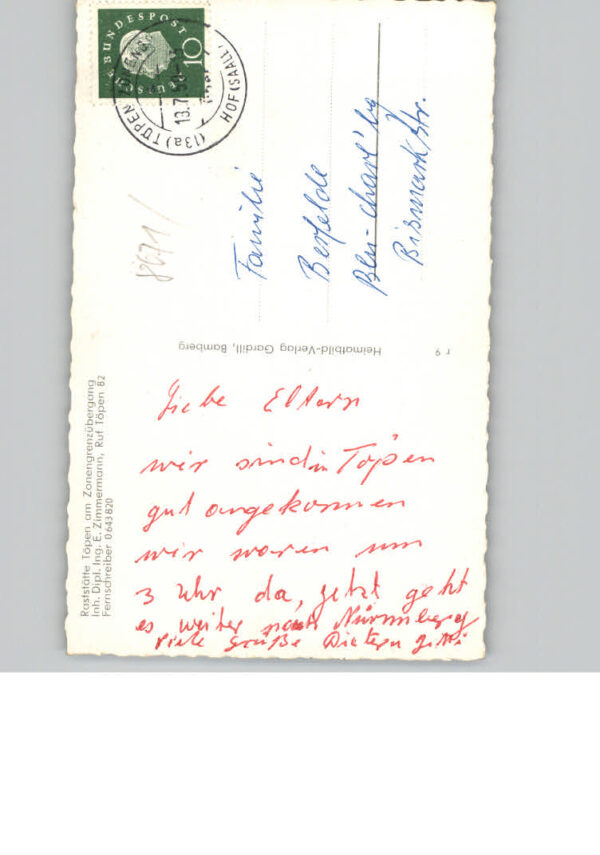 BUNDESPOST
10
(13a) TÖPEN
HOF (SAALE)
Familie
Berfelde
Bln-Charl'bg
Bismarckstr.
Heimatbild-Verlag Gardill, Bamberg
r 9
Raststätte Töpen am Zonengrenzübergang
Inh. Dipl. Ing. E. Zimmermann, Ruf Töpen 82
Fernschreiber 0643820
Liebe Eltern
wir sind in Töpen
gut angekommen
wir waren um
3 Uhr da, jetzt geht
es weiter nach Nürnmberg
viele Grüße